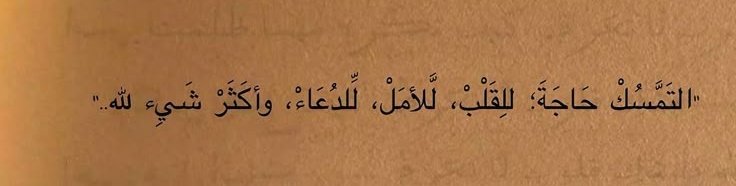 "التَمَّسُكْ حَاجَةَ؛ للِقَلْبْ، لَّلأمَلْ، لِّلدُعَاءْ، وأكثَرْ شَيِء لله.."